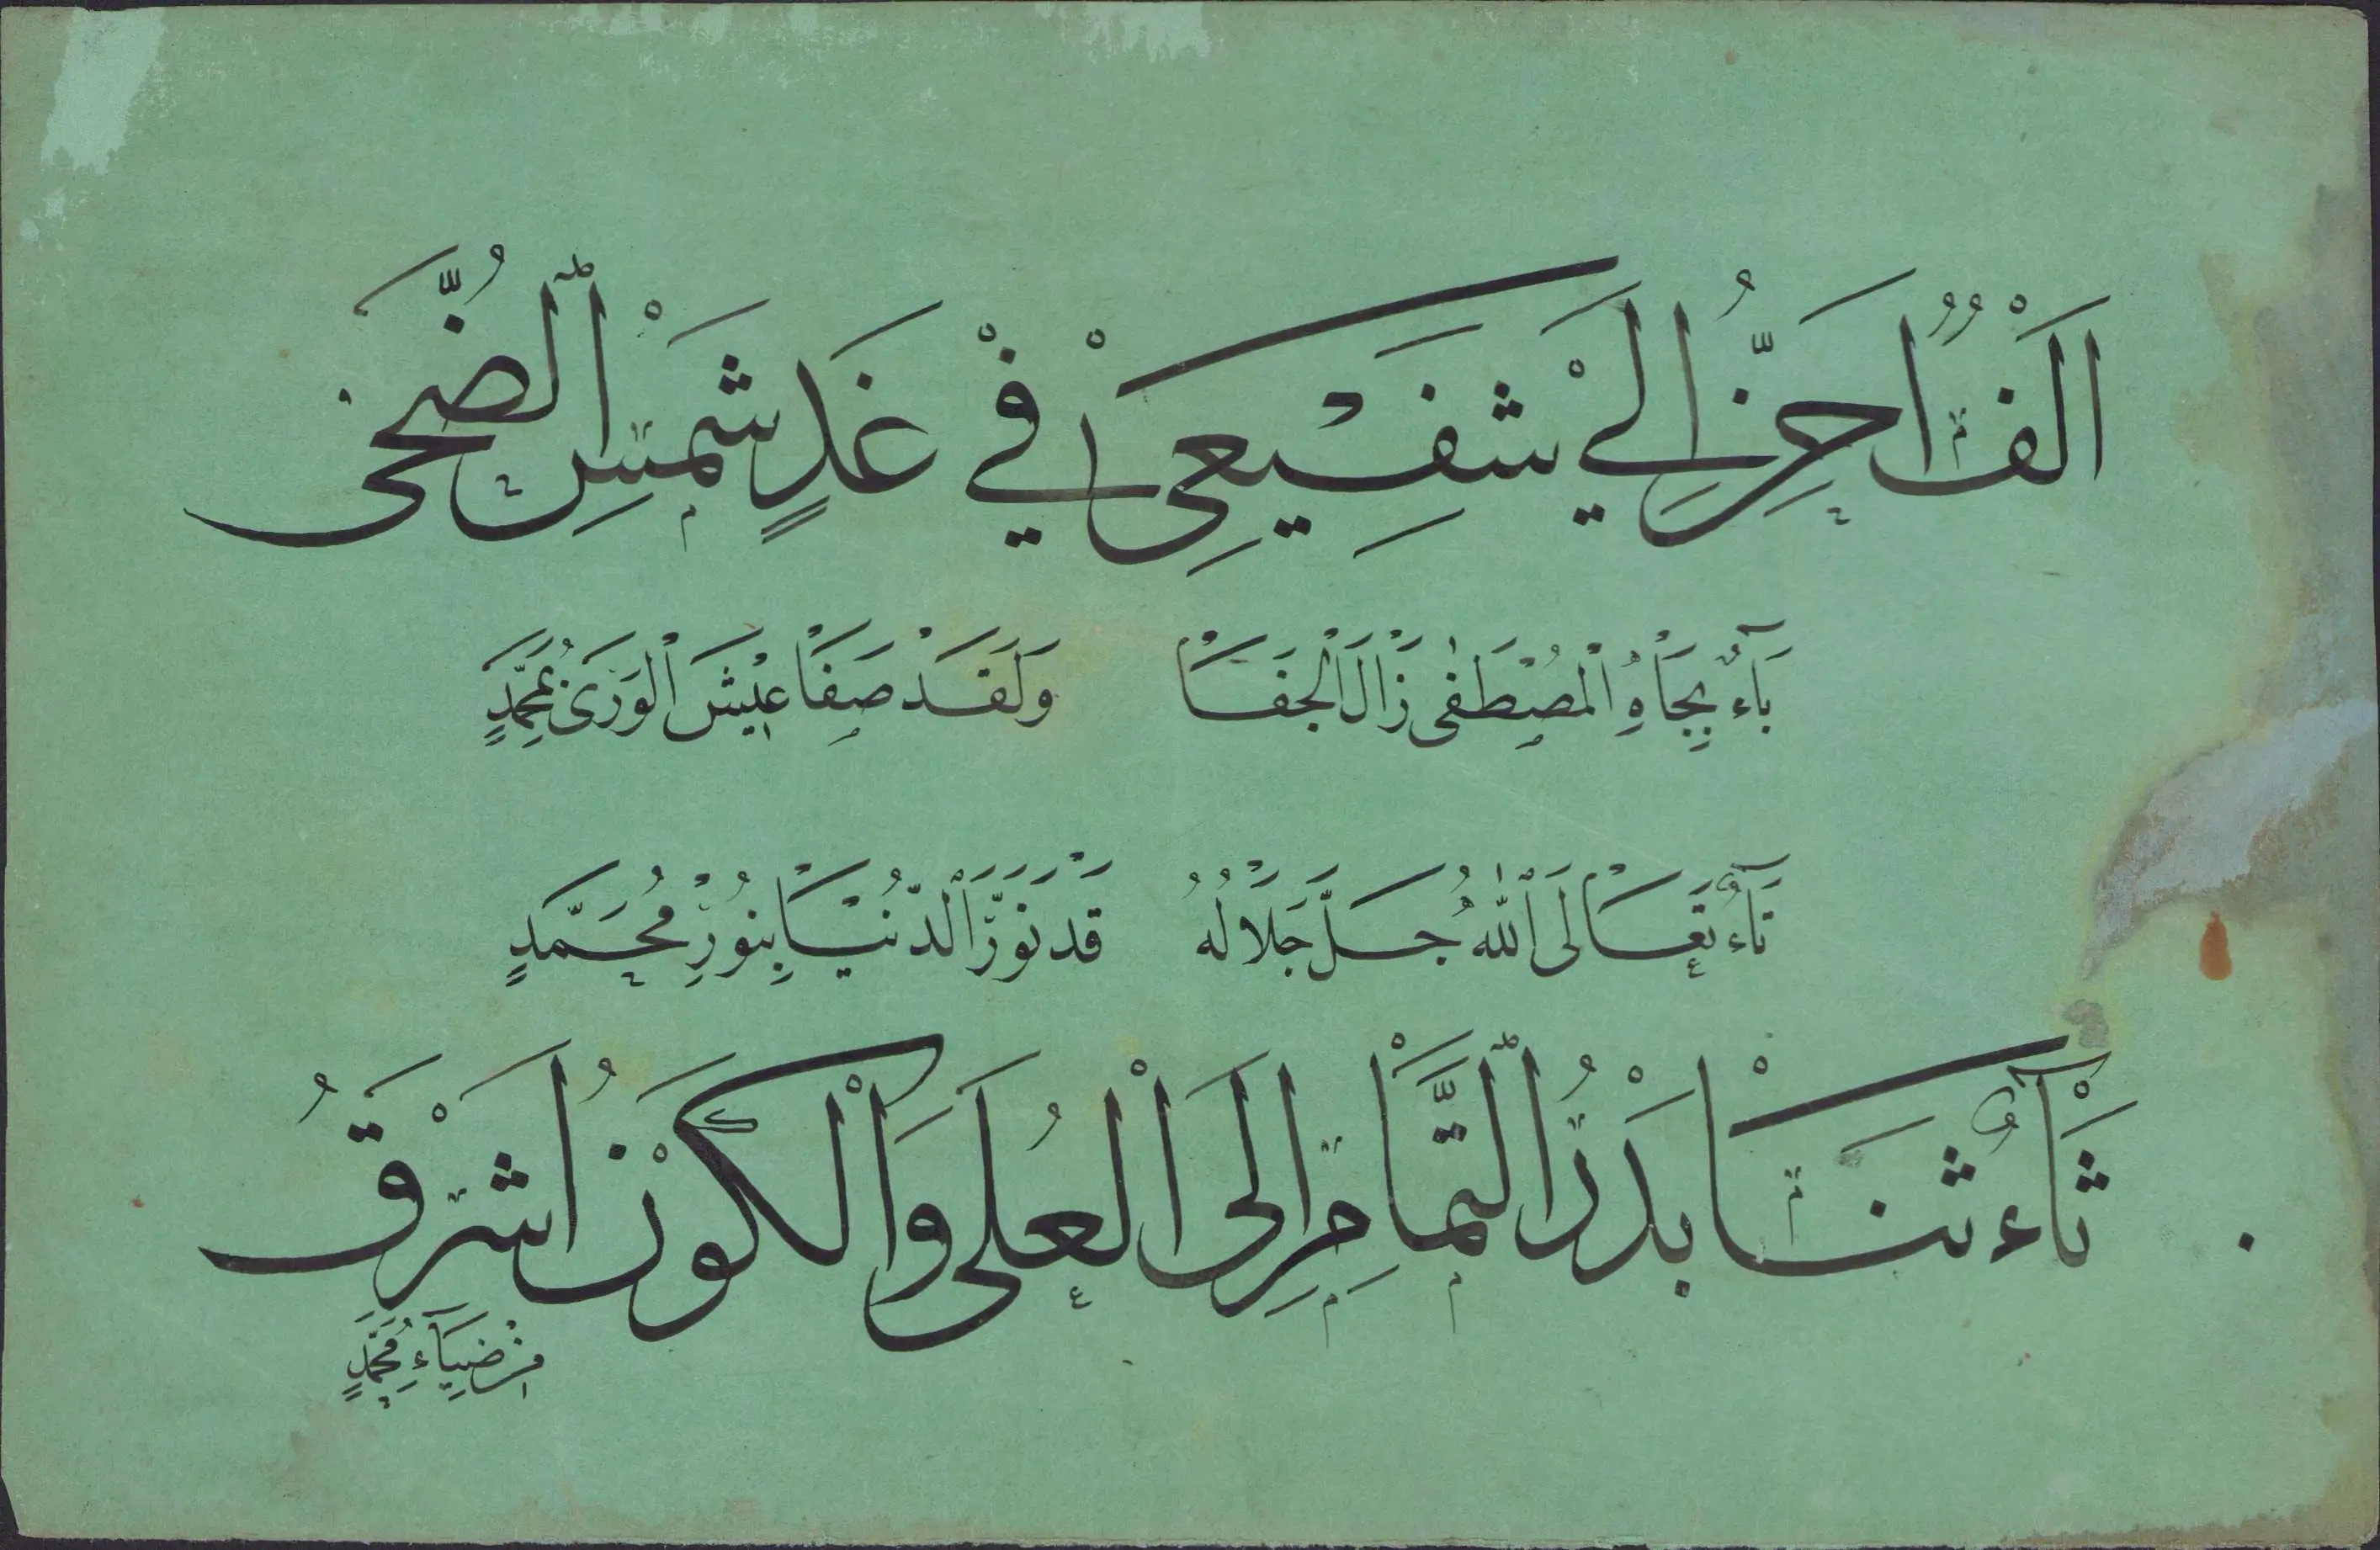 اَلْفٌ اَحِنُّ اِلَيْ شَفِيْعِيْ فِيْ غَدٍ شَمْسِ الضُّحَى
بَآءٌ بِجَاْهِ الْمُصْطَفٰى زَاْلَ الْجَفَاْ وَلَقَدْ صَفَاْ عَيْشَ الْوَرَىْ بِمُحَمَّدٍ
تَآءٌ تَعَاْلَى اللّٰهُ جَلَّ جَلَاْلُهُ قَدْ نَوَّرَ الدُّنْيَاْ بِنُوْرِ مُحَمَّدٍ
ثَآءٌ ثَنَاْ بَدْرُ التَّمَاْمِ اِلَى الْعُلَى وَالْكَوْنُ اَشْرَقُ
مِنْ ضِيَآءِ مُحَمَّدٍ